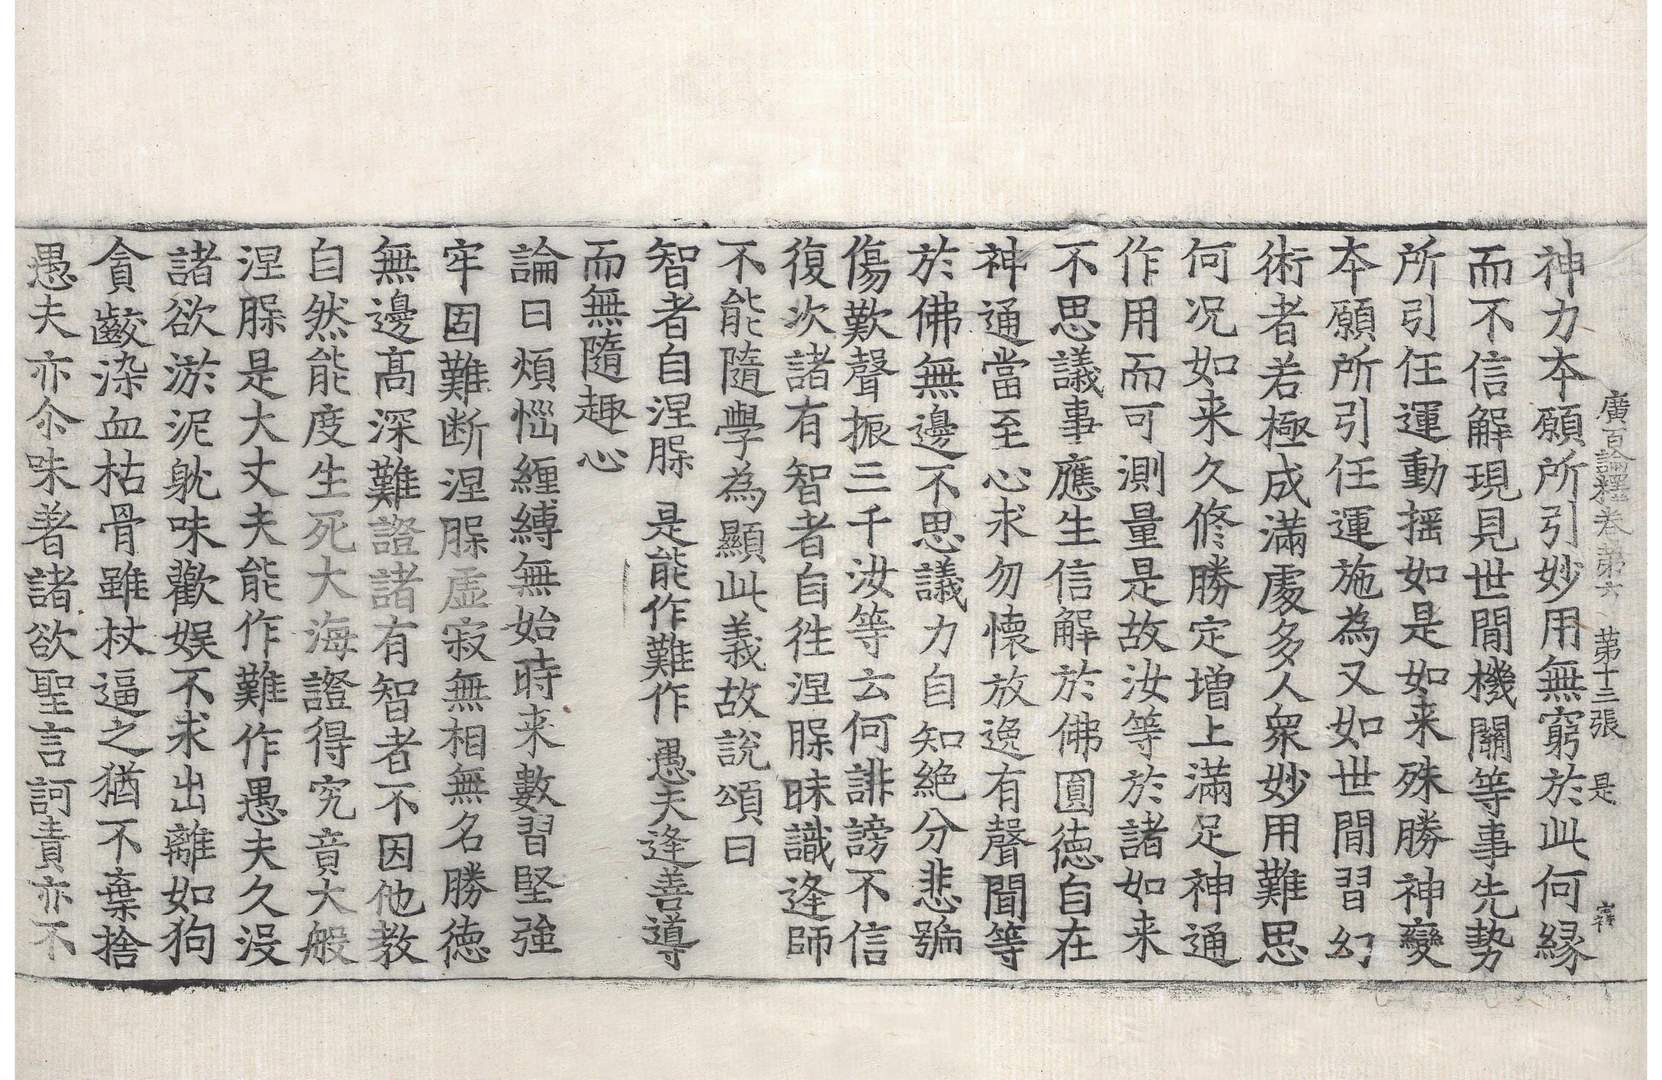 廣百論釋卷第六 第十三張 是
神力本願所引妙用無窮於此何縁
而不信解現見世間機關等事先勢
所引任運動揺如是如来殊勝神變
本願所引任運施為又如世間習幻
術者若極成滿處多人衆妙用難思
何況如来久修勝定增上滿足神通
作用而可測量是故汝等於諸如来
不思議事應生信解於佛圓德自在
神通當至心求勿懷放逸有聲聞等
於佛無邊不思議力自知絶分悲號
傷歎聲振三千汝等云何誹謗不信
復次諸有智者自徃涅槃昧識逄師
不能隨學為顯此義故說頌曰
智者自涅槃 是能作難作 愚夫逄善導
而無隨趣心
論曰煩惱纒縛無始時来數習堅強
牢固難断涅槃虛寂無相無名勝德
無邊髙深難證諸有智者不因他教
自然能度生死大海證得究竟大般
涅槃是大丈夫能作難作愚夫久没
諸欲淤泥躭味歡娱不求出離如狗
貪齩染血枯骨雖杖逼之猶不棄捨
愚夫亦尒味著諸欲聖言訶責亦不